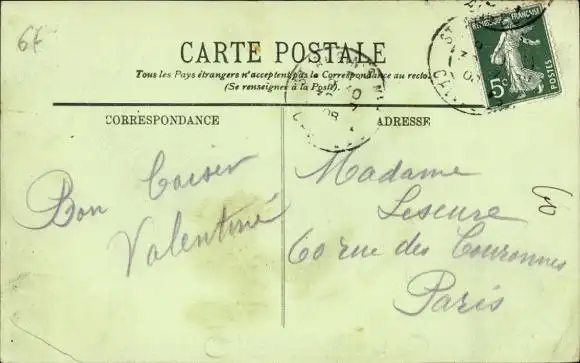 6f
CARTE POSTALE
Tous les Pays étrangers n'acceptent pas la Correspondance au recto.
(Se renseigner à la Poste).
RÉPUBLIQUE FRANÇAISE
5c
POSTES
CORRESPONDANCE
ADRESSE
Bon Baiser
Valentine
Madame
Leseure
60 rue des Couronnes
Paris
60